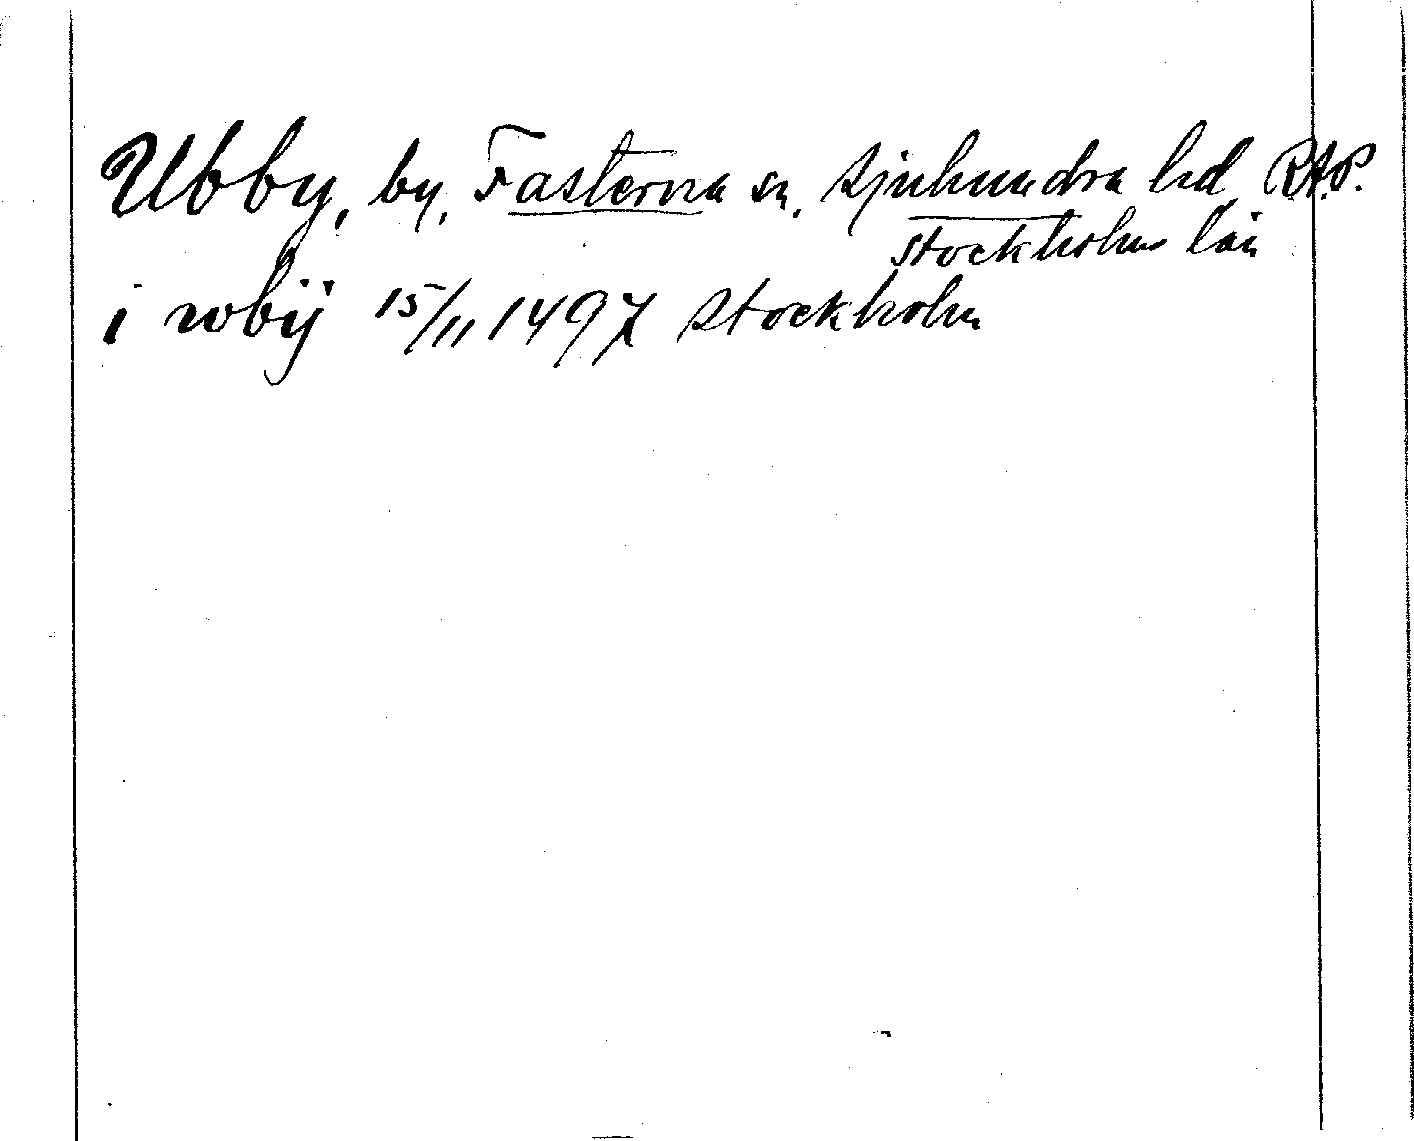 Ubby, by, Fasterna sn, Sjuhundra hd, RAP.
Stockholms län
i wbÿ 15/11 1497 Stockholm